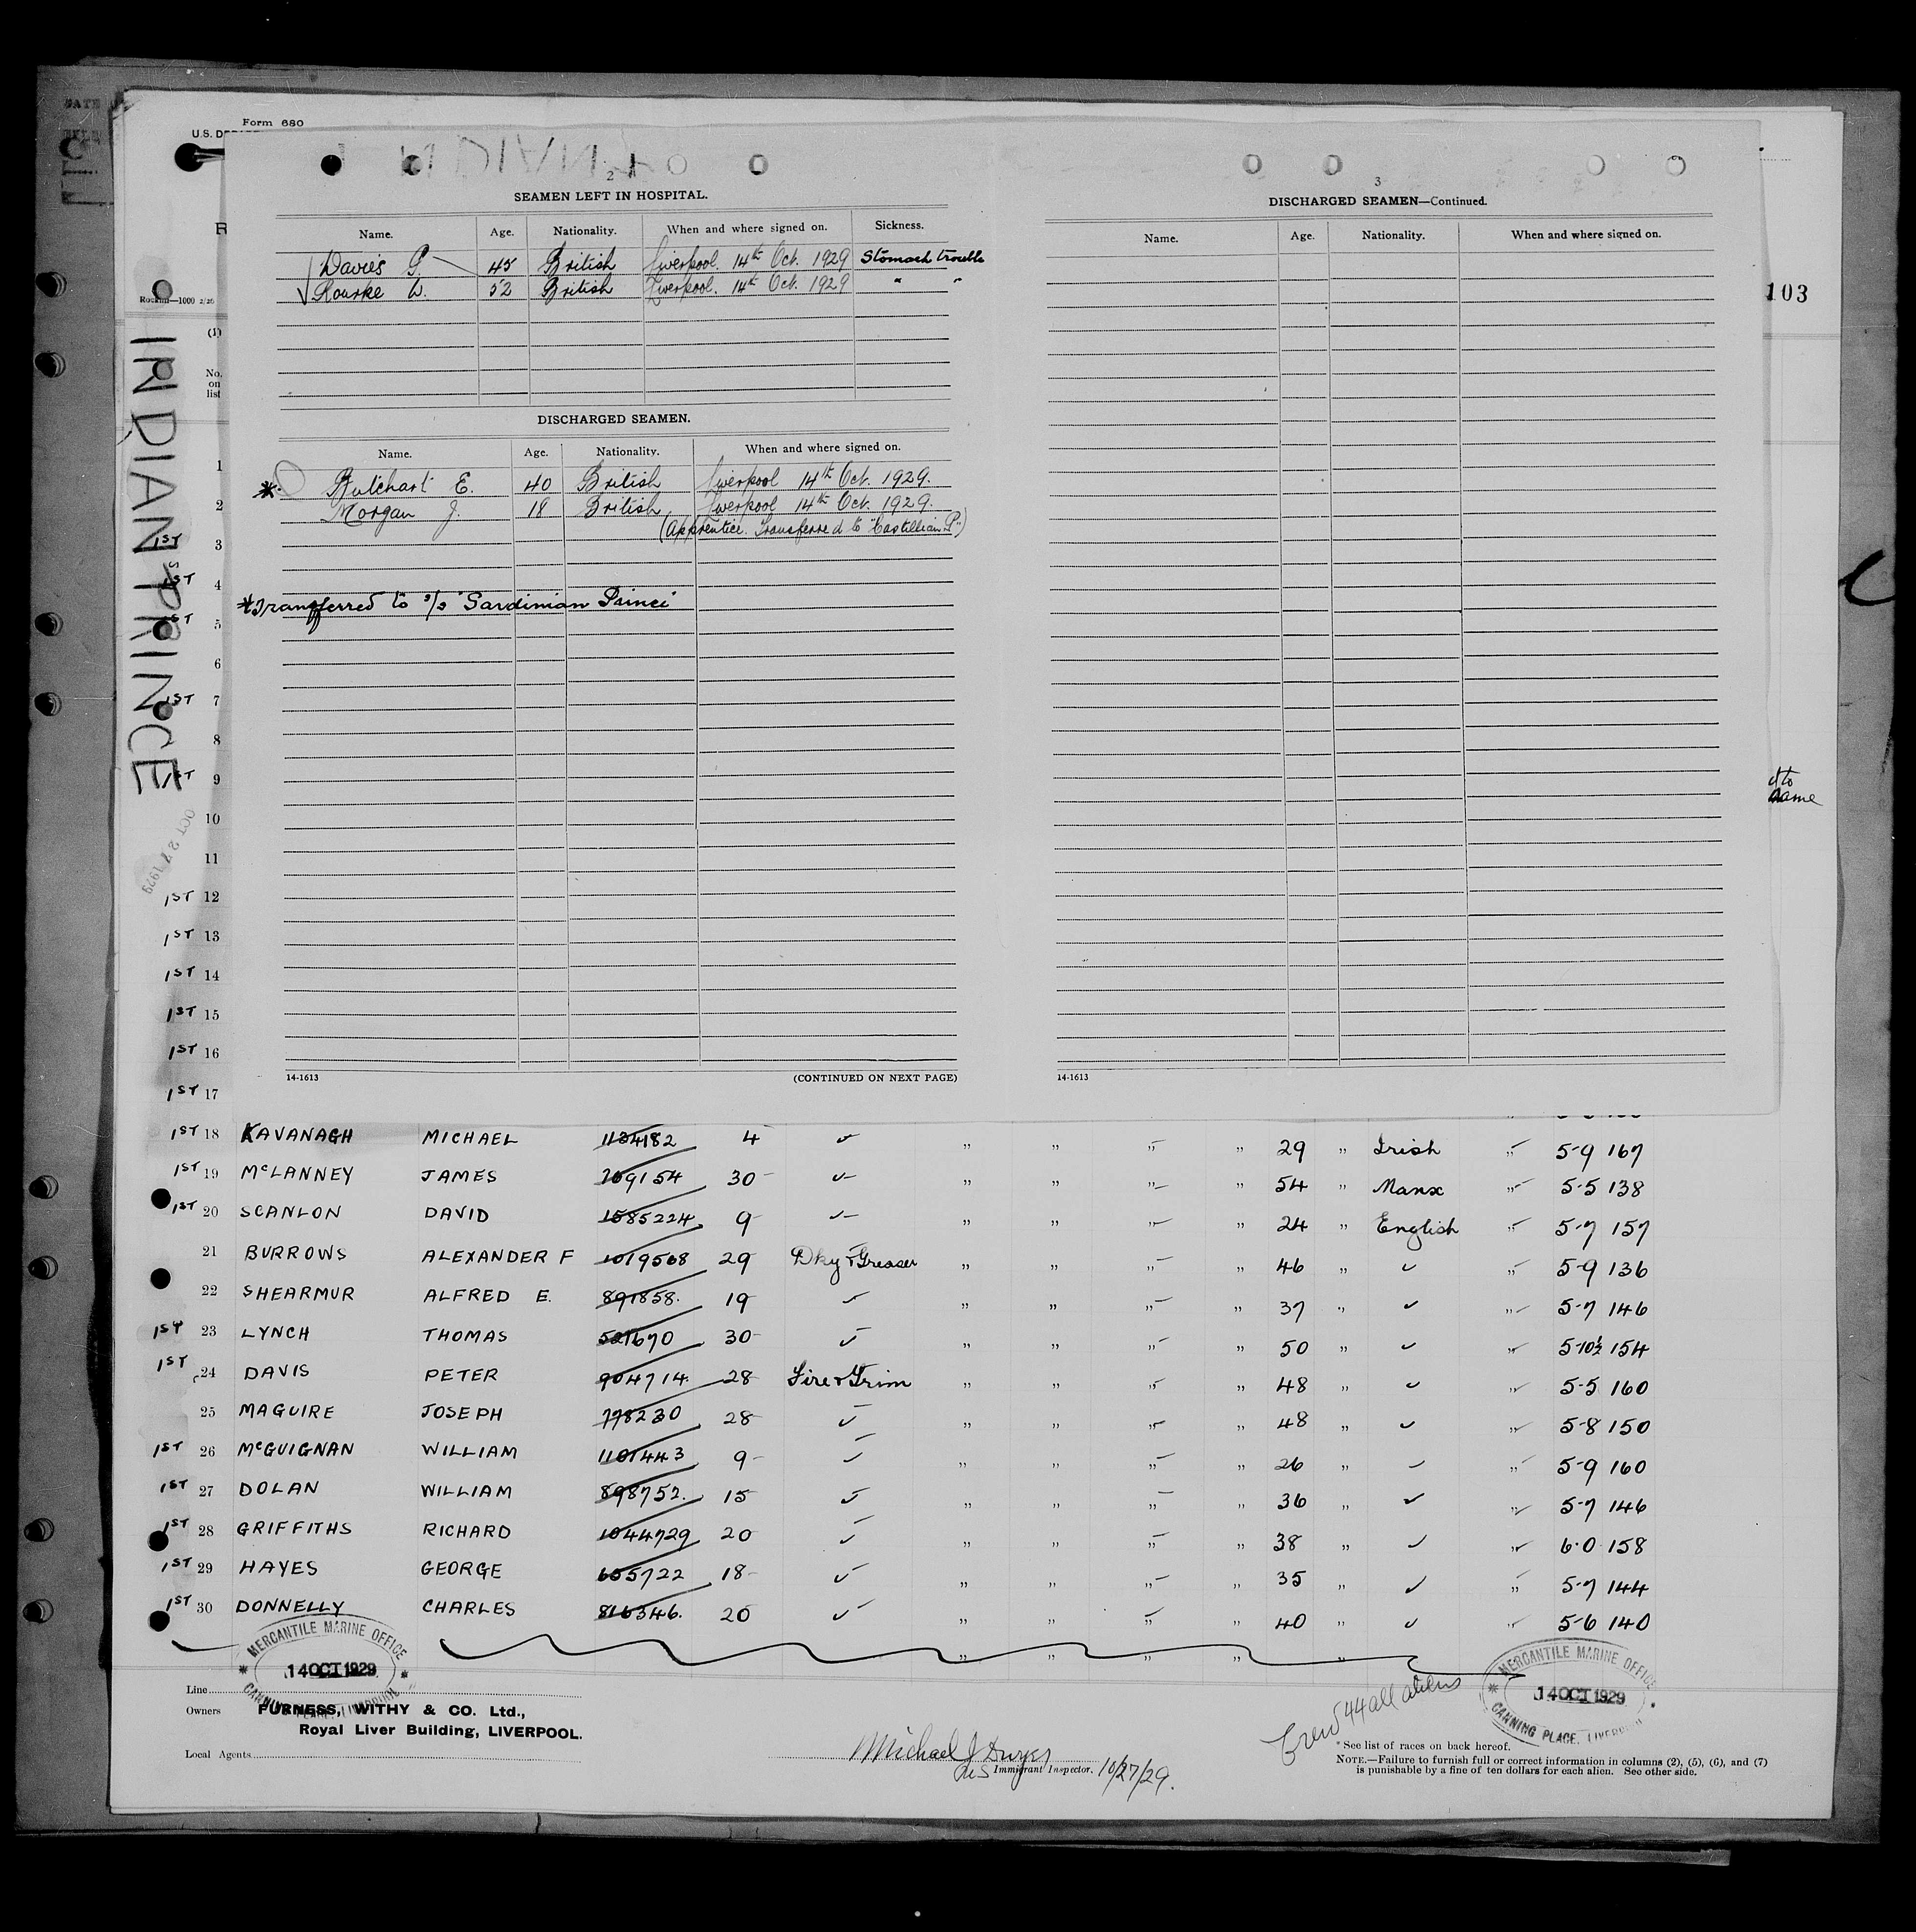 Form 680
U.S.
103
INDIAN PRINCE
2
SEAMEN LEFT IN HOSPITAL.
Name. Age. Nationality. When and where signed on. Sickness.
Davies P. 45 British Liverpool. 14th Oct. 1929 Stomach trouble
Rourke W. 52 British Liverpool. 14th Oct. 1929 " "
DISCHARGED SEAMEN.
Name. Age. Nationality. When and where signed on.
* Butchart E. 40 British Liverpool 14th Oct. 1929.
Morgan J. 18 British Liverpool 14th Oct. 1929.
(Apprentice. Transferred to "Castillian P.")
*Transferred to s/s "Sardinian Prince"
14-1613 (CONTINUED ON NEXT PAGE)
3
DISCHARGED SEAMEN—Continued.
Name. Age. Nationality. When and where signed on.
14-1613
(1)
No. on list
1
2
1ST 3
1ST 4
1ST 5
6
1ST 7
8
1ST 9
10
11
1ST 12
1ST 13
1ST 14
1ST 15
1ST 16
1ST 17
OCT 27 1929
1ST 18 KAVANAGH MICHAEL 1134182 4 ✓ " " " " 29 " Irish " 5-9 167
1ST 19 McLANNEY JAMES 709154 30 ✓ " " " " 54 " Manx " 5-5 138
1ST 20 SCANLON DAVID 1585224 9 ✓ " " " " 24 " English " 5-7 157
21 BURROWS ALEXANDER F 1019508 29 Dky & Greaser " " " " 46 " ✓ " 5-9 136
22 SHEARMUR ALFRED E. 891858. 19 ✓ " " " " 37 " ✓ " 5-7 146
1ST 23 LYNCH THOMAS 521670 30 ✓ " " " " 50 " ✓ " 5-10½ 154
1ST 24 DAVIS PETER 904714. 28 Fire & Trim " " " " 48 " ✓ " 5-5 160
25 MAGUIRE JOSEPH 778230 28 ✓ " " " " 48 " ✓ " 5-8 150
1ST 26 McGUIGNAN WILLIAM 1101443 9 ✓ " " " " 26 " ✓ " 5-9 160
1ST 27 DOLAN WILLIAM 898752. 15 ✓ " " " " 36 " ✓ " 5-7 146
1ST 28 GRIFFITHS RICHARD 1044729 20 ✓ " " " " 38 " ✓ " 6-0 158
1ST 29 HAYES GEORGE 655722 18 ✓ " " " " 35 " ✓ " 5-7 144
1ST 30 DONNELLY CHARLES 816346. 20 ✓ " " " " 40 " ✓ " 5-6 140
" " " " "
MERCANTILE MARINE OFFICE
14 OCT 1929
CANNING PLACE, LIVERPOOL
Line
Owners FURNESS, WITHY & CO. Ltd.,
Royal Liver Building, LIVERPOOL.
Local Agents
Michael J Dwyer
Immigrant Inspector. 10/27/29.
Crew 44 all aliens
MERCANTILE MARINE OFFICE
14 OCT 1929
CANNING PLACE, LIVERPOOL
*See list of races on back hereof.
NOTE.—Failure to furnish full or correct information in columns (2), (5), (6), and (7)
is punishable by a fine of ten dollars for each alien. See other side.